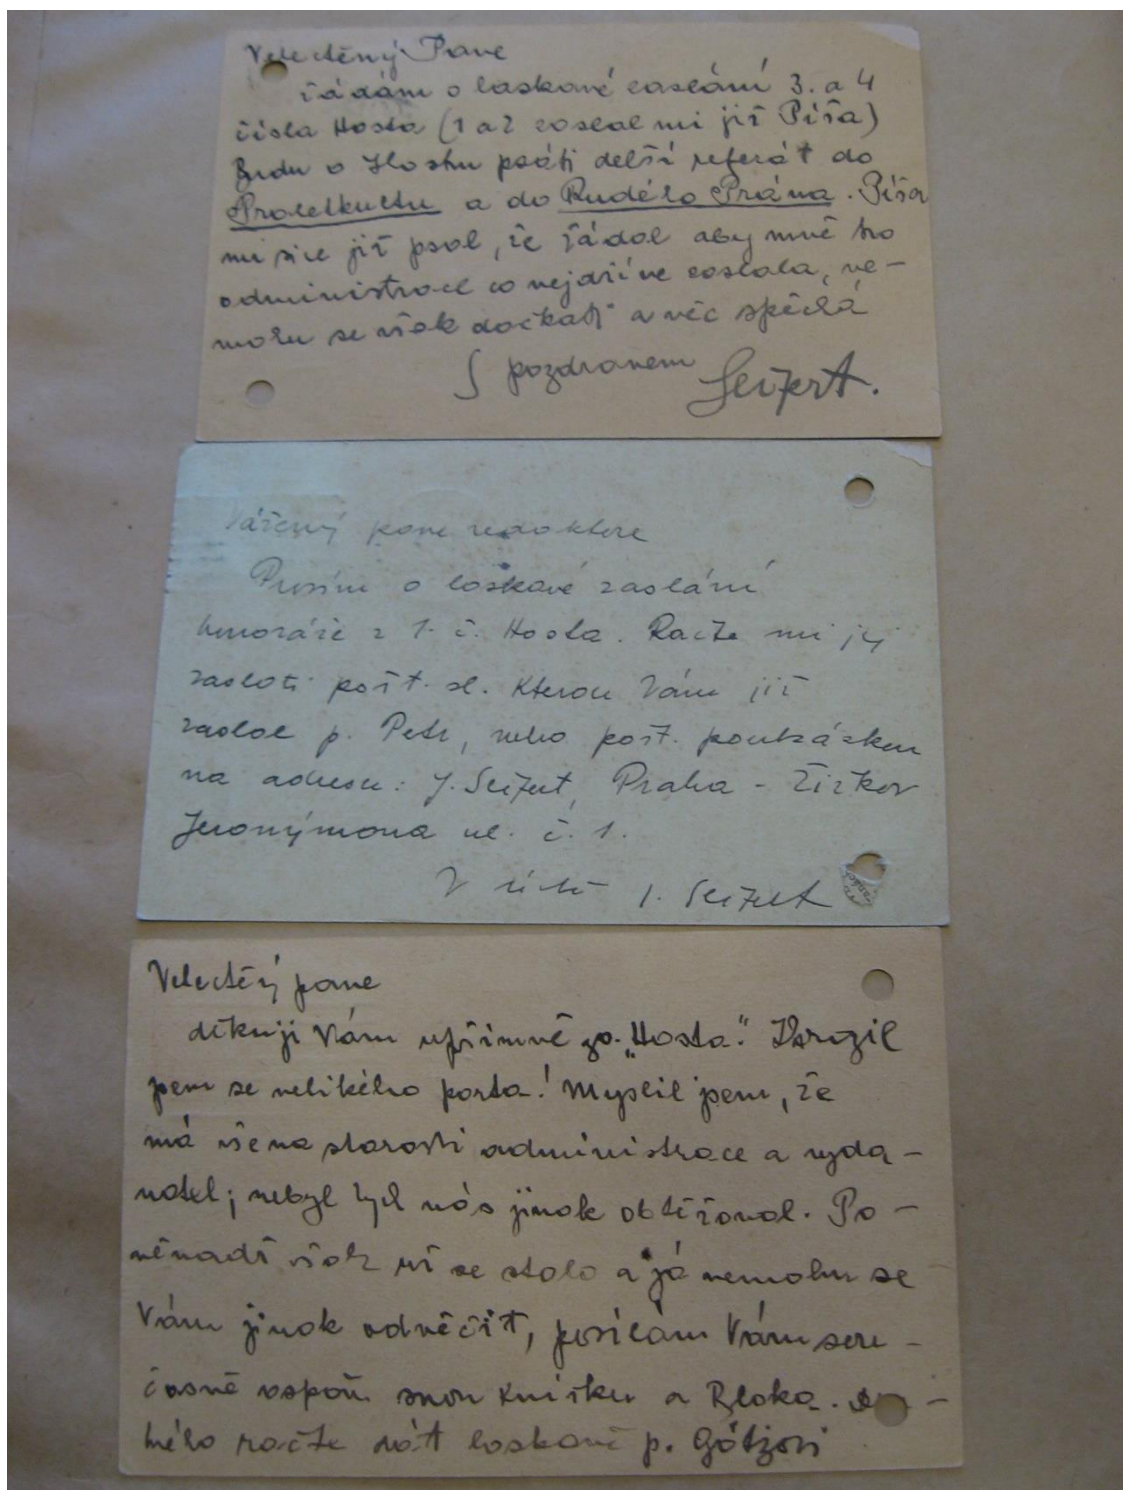 Velectěný Pane
žádám o laskavé zaslání 3. a 4
čísla Hosta (1 a 2 zaslal mi již Píša)
Budu o Hostu psáti delší referát do
Proletkultu a do Rudého Práva. Píša
mi sice již psal, že žádal aby mně ho
administrace co nejdříve zaslala, ne-
mohu se však dočkati a věc spěchá
S pozdravem Seifert.
Vážený pane redaktore
Prosím o laskavé zaslání
honoráře z 1. č. Hosta. Račte mi jej
zaslati pošt. sl. kterou Vám již
zaslal p. Petr, nebo pošt. poukázkou
na adresu: J. Seifert, Praha - Žižkov
Jeronýmova ul. č. 1.
V úctě J. Seifert
Velectěný pane
děkuji Vám upřímně za „Hosta“. Zhrozil
jsem se velikého porta! Myslil jsem, že
má vše na starosti administrace a vyda-
vatel; nebyl bych Vás jinak obtěžoval. Po-
něvadž však už se stalo a já nemohu se
Vám jinak odvěčit, posílám Vám sou-
časně aspoň svou knížku a Bloka.
hého račte dát laskavě p. Götzovi